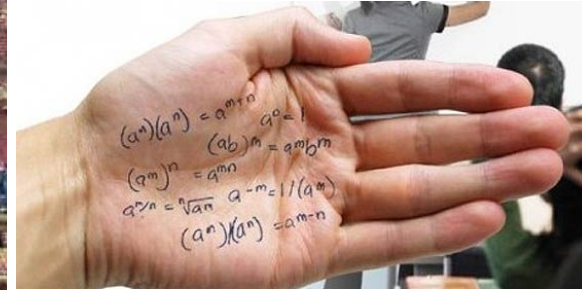 (aⁿ)(aⁿ) = aᵐ⁺ⁿ
a⁰ = 1
(ab)ᵐ = aᵐbᵐ
(aᵐ)ⁿ = aᵐⁿ
aⁿ/ⁿ = ⁿ√aⁿ a⁻ᵐ = 1/(aᵐ)
(aⁿ)/(aⁿ) = aᵐ⁻ⁿ